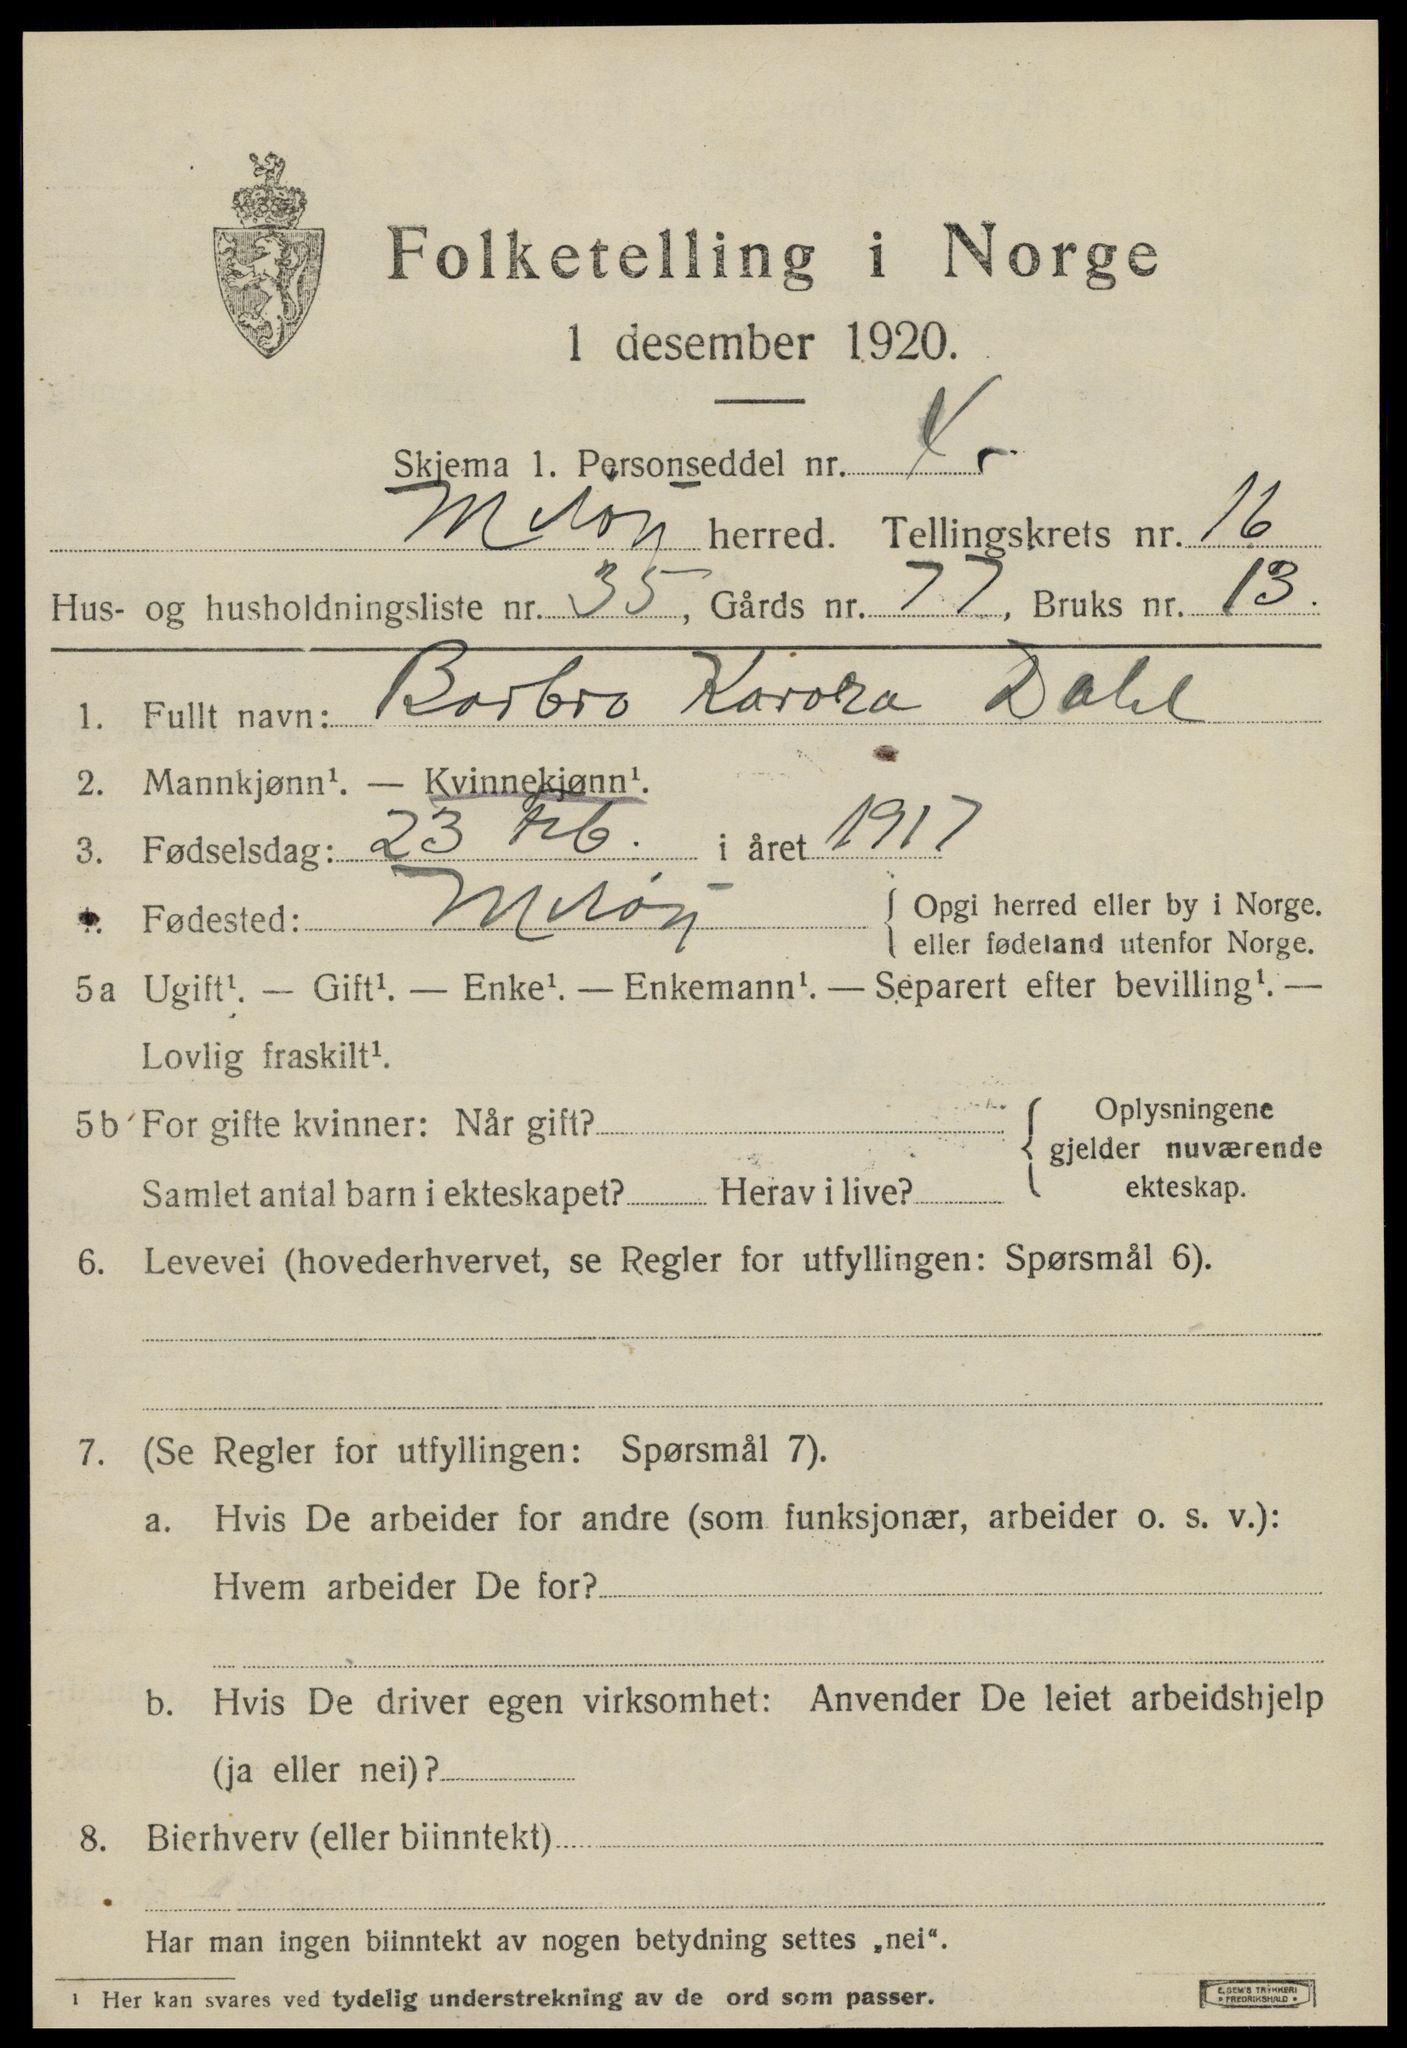 Folketelling i Norge
1 desember 1920.
Skjema 1. Personseddel nr.
Meløy herred. Tellingskrets nr. 16
Hus- og husholdningsliste nr. 35, Gårds nr. 77, Bruks nr. 13.
1. Fullt navn: Barbro Karora Dahl
2. Mannkjønn¹. — Kvinnekjønn¹.
3. Fødselsdag: 23 Feb. i året 1917
Fødested: Meløy { Opgi herred eller by i Norge.
eller fødeland utenfor Norge.
5a Ugift¹. — Gift¹. — Enke¹. — Enkemann¹. — Separert efter bevilling¹. —
Lovlig fraskilt¹.
5b For gifte kvinner: Når gift? { Oplysningene
gjelder nuværende
Samlet antal barn i ekteskapet? Herav i live? ekteskap.
6. Levevei (hovederhvervet, se Regler for utfyllingen: Spørsmål 6).
7. (Se Regler for utfyllingen: Spørsmål 7).
a. Hvis De arbeider for andre (som funksjonær, arbeider o. s. v.):
Hvem arbeider De for?
b. Hvis De driver egen virksomhet: Anvender De leiet arbeidshjelp
(ja eller nei)?
8. Bierhverv (eller biinntekt)
Har man ingen biinntekt av nogen betydning settes „nei“.
¹ Her kan svares ved tydelig understrekning av de ord som passer.
E. SEM'S TRYKKERI
• FREDRIKSHALD •